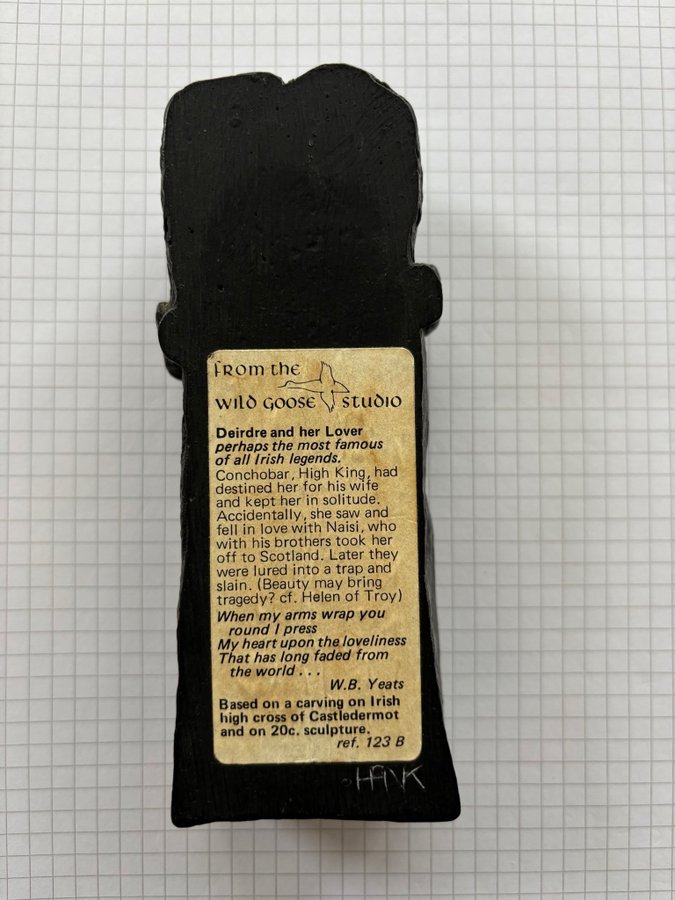 from the
wild goose studio
Deirdre and her Lover
perhaps the most famous
of all Irish legends.
Conchobar, High King, had
destined her for his wife
and kept her in solitude.
Accidentally, she saw and
fell in love with Naisi, who
with his brothers took her
off to Scotland. Later they
were lured into a trap and
slain. (Beauty may bring
tragedy? cf. Helen of Troy)
When my arms wrap you
round I press
My heart upon the loveliness
That has long faded from
the world . . .
W.B. Yeats
Based on a carving on Irish
high cross of Castledermot
and on 20c. sculpture.
ref. 123 B